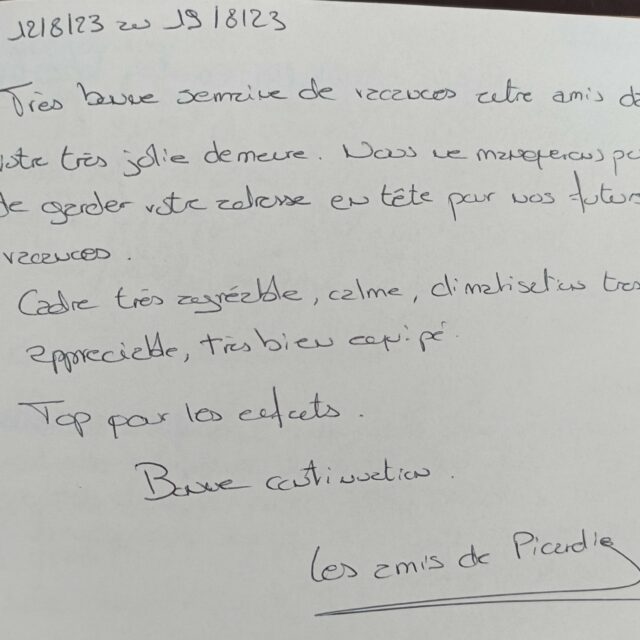 12/8/23 au 19/8/23
Très bonne semaine de vacances entre amis da
votre très jolie demeure. Nous ne manquerons pa
de garder votre adresse en tête pour nos future
vacances.
Cadre très agréable, calme, climatisation très
appreciable, très bien equipé.
Top pour les enfants.
Bonne continuation.
Les amis de Picardie